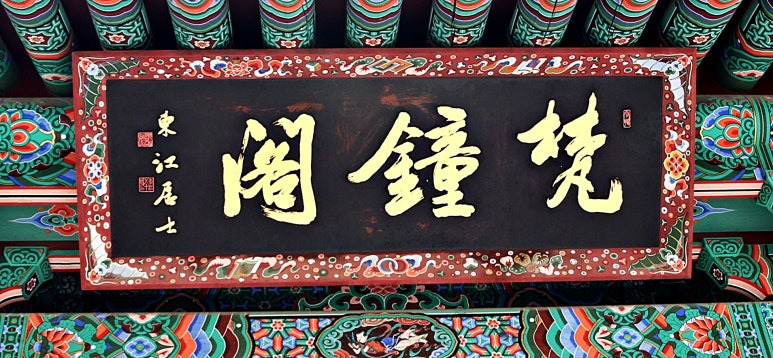 梵鐘閣
東江居士